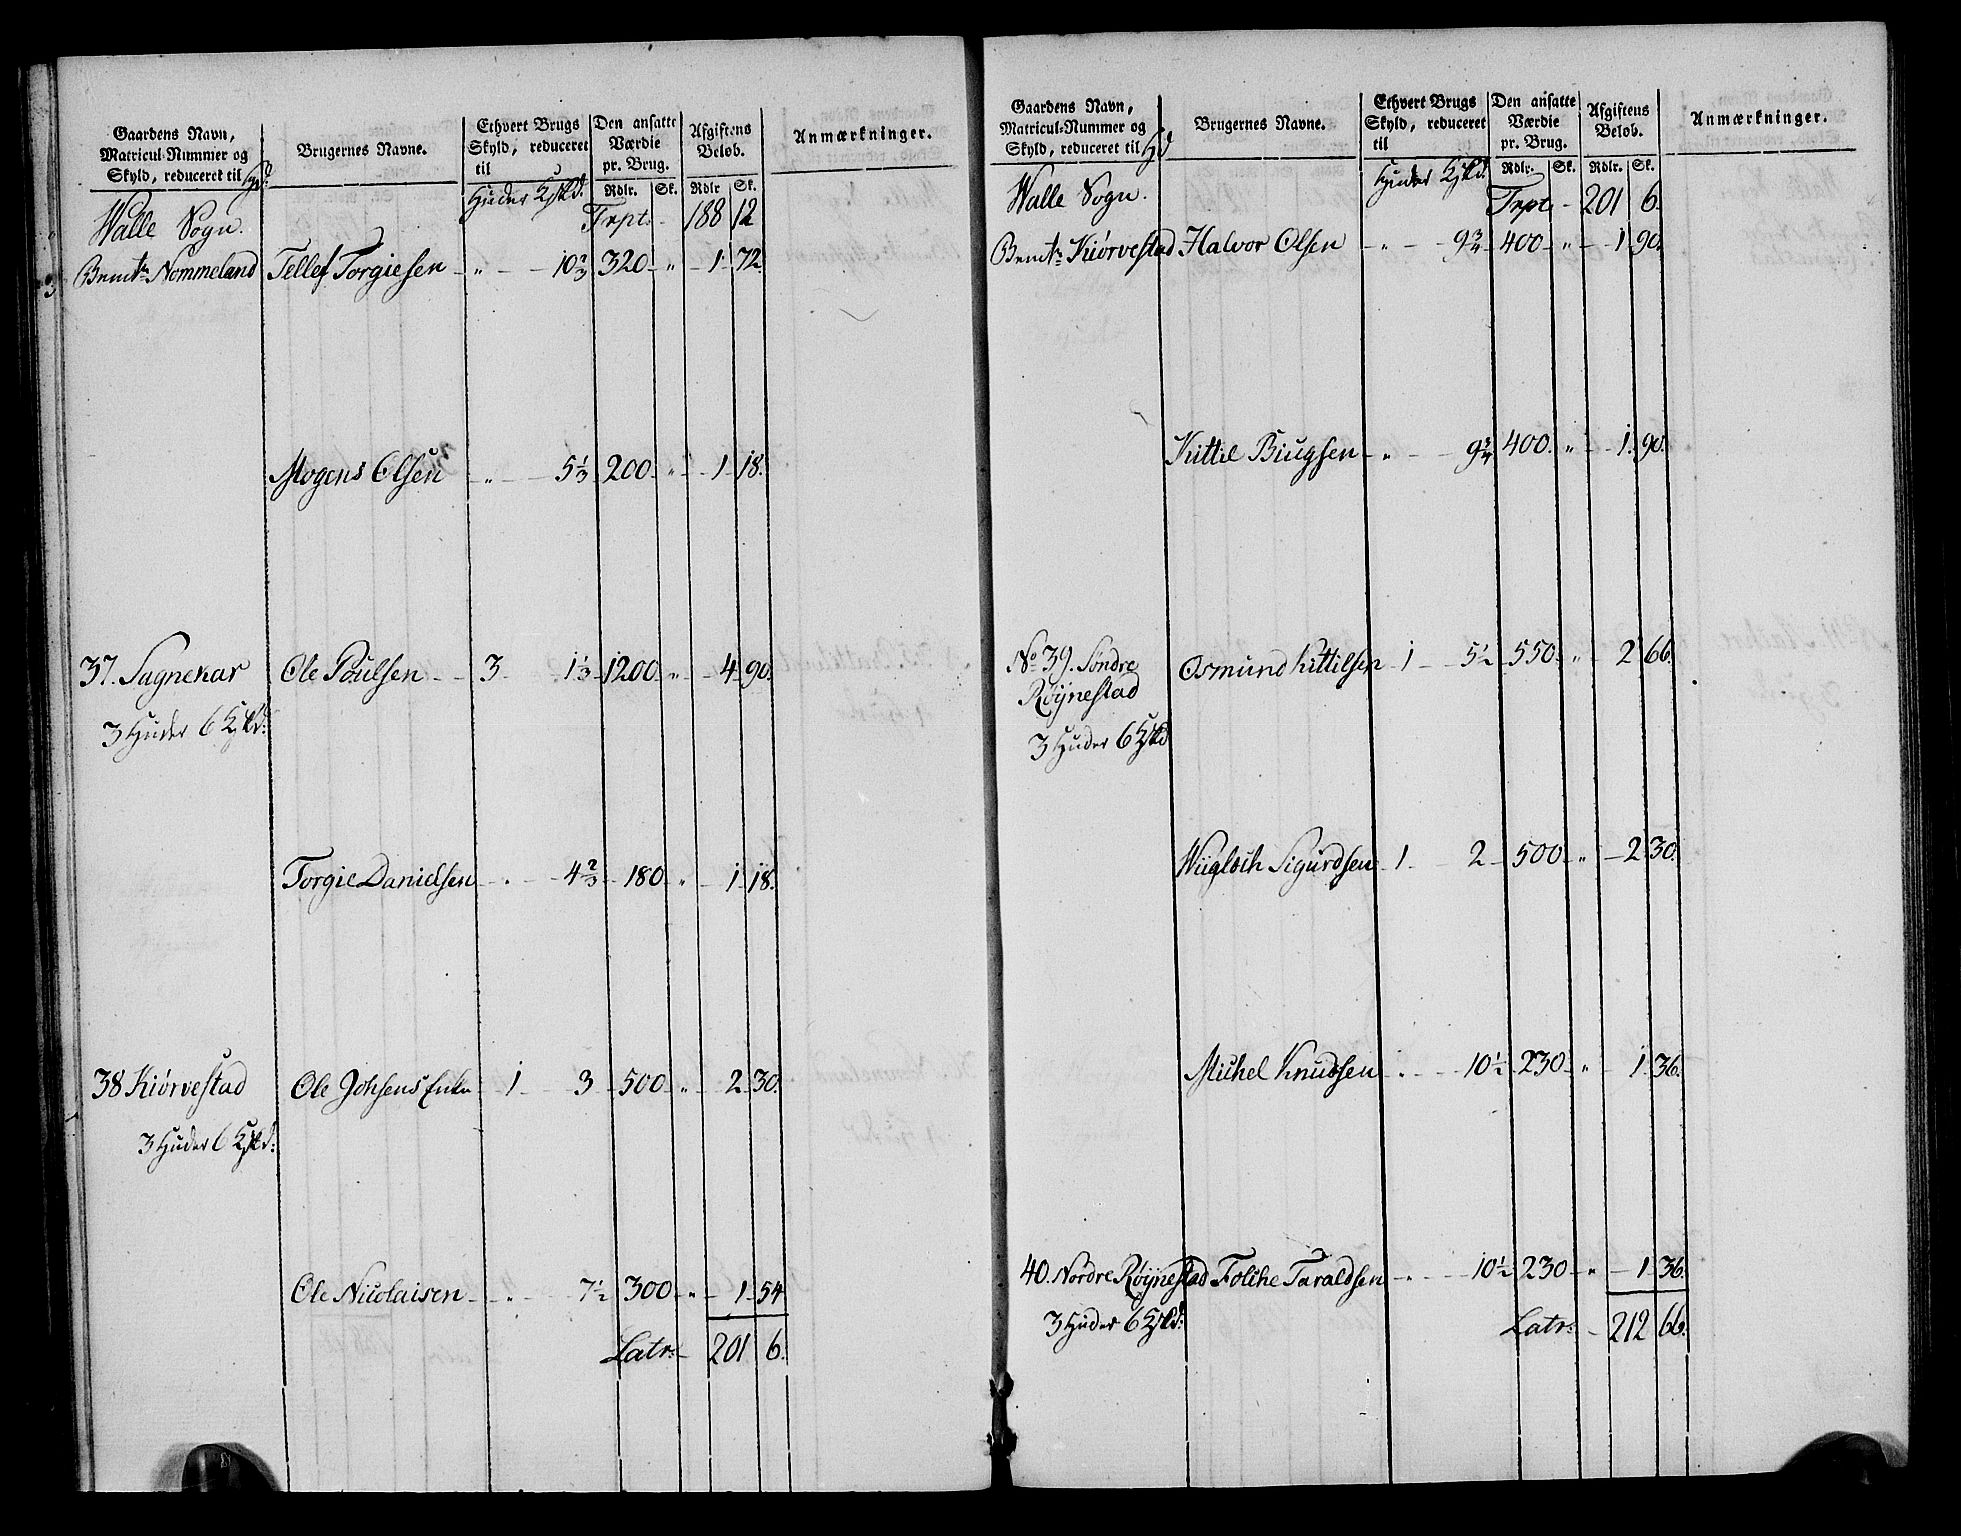 Gaardens Navn, Matricul-Nummer og Skyld, reduceret til Hd:
Brugernes Navne.
Ethvert Brugs Skyld, reduceret til
Den ansatte Værdie pr. Brug.
Afgiftens Beløb.
Anmærkninger.
Huder Kskd: Rdlr. Sk. Rdlr Sk.
Walle Sogn. Trpt - 188 12
Bemte Nommeland Tellef Torgiesen - „ - 10 2/3 320 - „ - 1 - 72
Mogens Olsen - „ - 5 1/3 200 - „ - 1 - 18.
37. Sagneskar Ole Poulsen - 3 - 1 1/3 1200 - „ - 4 - 90.
3 Huder 6 Kskd:
Torgie Danielsen - „ - 4 2/3 - 180 „ - 1 - 18.
38 Kiørvestad Ole Johsens Enke - 1 - 3 - 500 - „ - 2 - 30.
3 Huder 6 Kskd:
Ole Nicolaisen - „ - 7 1/2 300 - „ - 1 - 54
Latr: - 201 6.
Gaardens Navn, Matricul-Nummer og Skyld, reduceret til Hd
Brugernes Navne.
Ethvert Brugs Skyld, reduceret til
Den ansatte Værdie pr. Brug.
Afgiftens Beløb.
Anmærkninger.
Huder Kskd: Rdlr. Sk. Rdlr. Sk.
Walle Sogn. Trpt - 201 6.
Bemte Kiørvestad Halvor Olsen - „ - 9 3/4 - 400 - „ - 1 90.
Kittil Biugsen - „ - 9 3/4 - 400. „ - 1. 90.
No 39. Søndre Osmund Kittilsen - 1 - 5 1/2 - 550 - „ - 2 66.
Røÿnestad
3 Huder 6 Kskd
Wiglech Sigurdsen - 1 - 2 - 500 - „ - 2 30.
Michel Knudsen - „ - 10 1/2 - 230 - „ - 1 36.
40. Nordre Røÿnestad Folche Taraldsen - „ - 10 1/2 230 - „ - 1 36.
3 Huder 6 Kskd:
Latr: - 212 66.